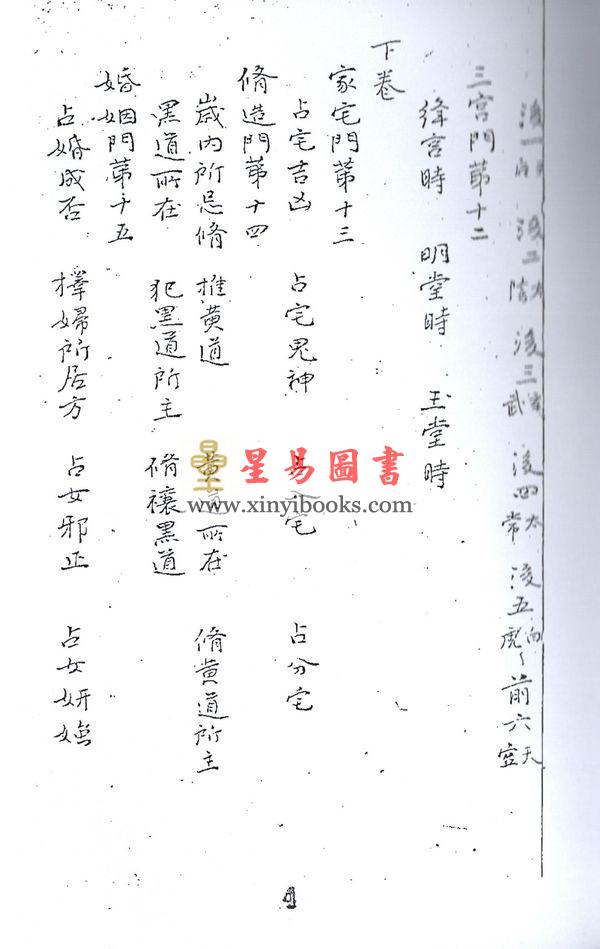 後一天后 後二太陰 後三玄武 後四太常 後五白虎 前六天空
三宮門苐十二
絳宮時 明堂時 玉堂時
下卷
家宅門苐十三
占宅吉凶 占宅鬼神 宅 占分宅
脩造門苐十四
歲內所忌脩 推黄道 黄道所在 脩黄道所主
黑道所在 犯黑道所主 脩禳黑道
婚姻門苐十五
占婚成否 擇婦所居方 占女邪正 占女妍媸
星易圖書
www.xinyibooks.com
4